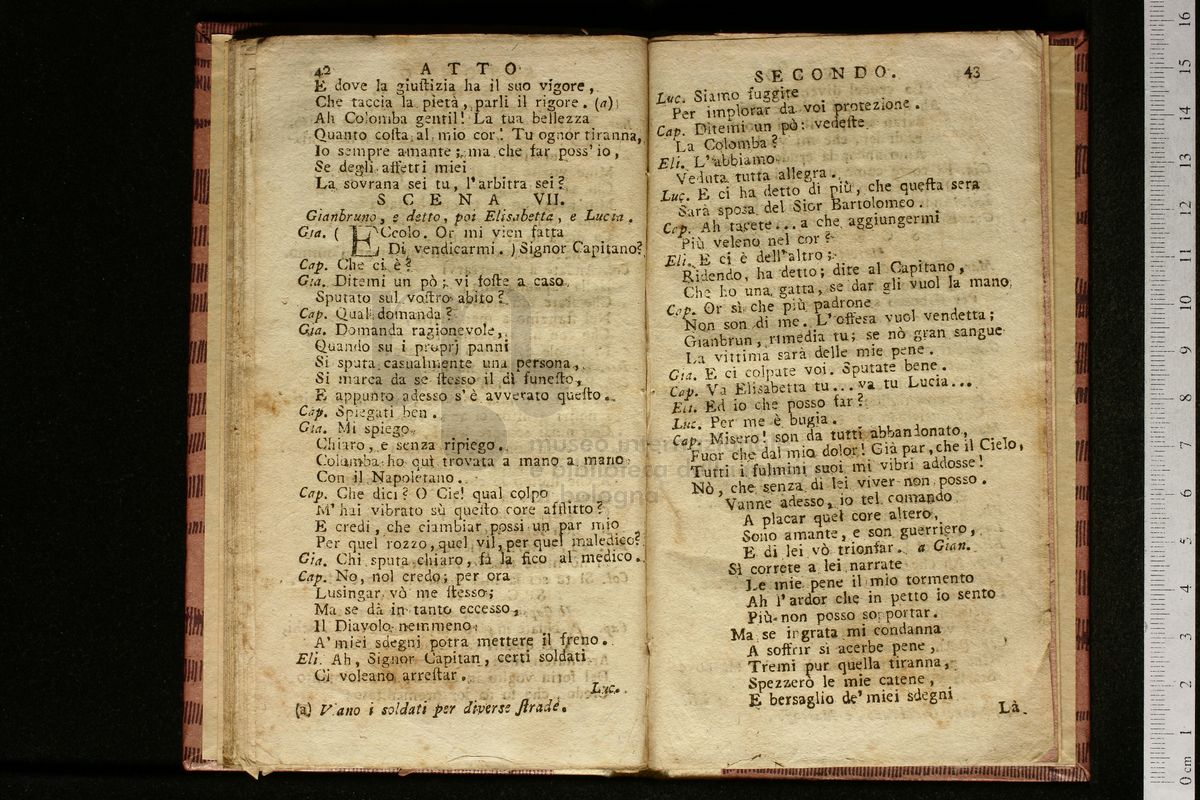 42 ATTO
E dove la giuſtizia ha il suo vigore,
Che taccia la pietà, parli il rigore. (a)
Ah Colomba gentil! La tua bellezza
Quanto coſta al mio cor! Tu ognor tiranna,
Io sempre amante; ma che far poss' io,
Se degli affetti miei
La sovrana sei tu, l'arbitra sei?
SCENA VII.
Gianbruno, e detto, poi Elisabetta, e Lucia.
Gia. ( ECcolo. Or mi vien fatta
Di vendicarmi. ) Signor Capitano?
Cap. Che ci è?
Gia. Ditemi un pò; vi foſte a caso
Sputato sul voſtro abito?
Cap. Qual domanda?
Gia. Domanda ragionevole,
Quando su i proprj panni
Si sputa casualmente una persona,
Si marca da se ſtesso il dì funeſto,
E appunto adesso s'è avverato queſto.
Cap. Spiegati ben.
Gia. Mi spiego
Chiaro, e senza ripiego.
Columba ho quì trovata a mano a mano
Con il Napoletano.
Cap. Che dici? O Cie! qual colpo
M' hai vibrato sù queſto core afflitto?
E credi, che ciambiar possi un par mio
Per quel rozzo, quel vil, per quel maledico?
Gia. Chi sputa chiaro, fà la fico al medico.
Cap. No, nol credo; per ora
Lusingar vò me ſtesso;
Ma se dà in tanto eccesso,
Il Diavolo nemmeno
A' miei sdegni potra mettere il freno.
Eli. Ah, Signor Capitan, certi soldati
Ci voleano arreſtar.
Luc.
(a) Vano i soldati per diverse ſtrade.
SECONDO. 43
Luc. Siamo fuggite
Per implorar da voi protezione.
Cap. Ditemi un pò: vedeſte
La Colomba?
Eli. L'abbiamo
Veduta tutta allegra.
Luc. E ci ha detto di più, che queſta sera
Sarà sposa del Sior Bartolomeo.
Cap. Ah tacete... a che aggiungermi
Più veleno nel cor?
Eli. E ci è dell'altro;
Ridendo, ha detto; dite al Capitano,
Che ho una gatta, se dar gli vuol la mano
Cap. Or sì che più padrone
Non son di me. L'offesa vuol vendetta;
Gianbrun, rimedia tu; se nò gran sangue
La vittima sarà delle mie pene.
Gia. E ci colpate voi. Sputate bene.
Cap. Va Elisabetta tu... va tu Lucia...
Eli. Ed io che posso far?
Luc. Per me è bugia.
Cap. Misero! son da tutti abbandonato,
Fuor che dal mio dolor! Già par, che il Cielo,
Tutti i fulmini suoi mi vibri addosse!
Nò, che senza di lei viver non posso.
Vanne adesso, io tel comando
A placar quel core altero,
Sono amante, e son guerriero,
E di lei vò trionfar. a Gian.
Sì correte a lei narrate
Le mie pene il mio tormento
Ah l'ardor che in petto io sento
Più non posso sopportar.
Ma se ingrata mi condanna
A soffrir si acerbe pene,
Tremi pur quella tiranna,
Spezzerò le mie catene,
E bersaglio de' miei sdegni
Là